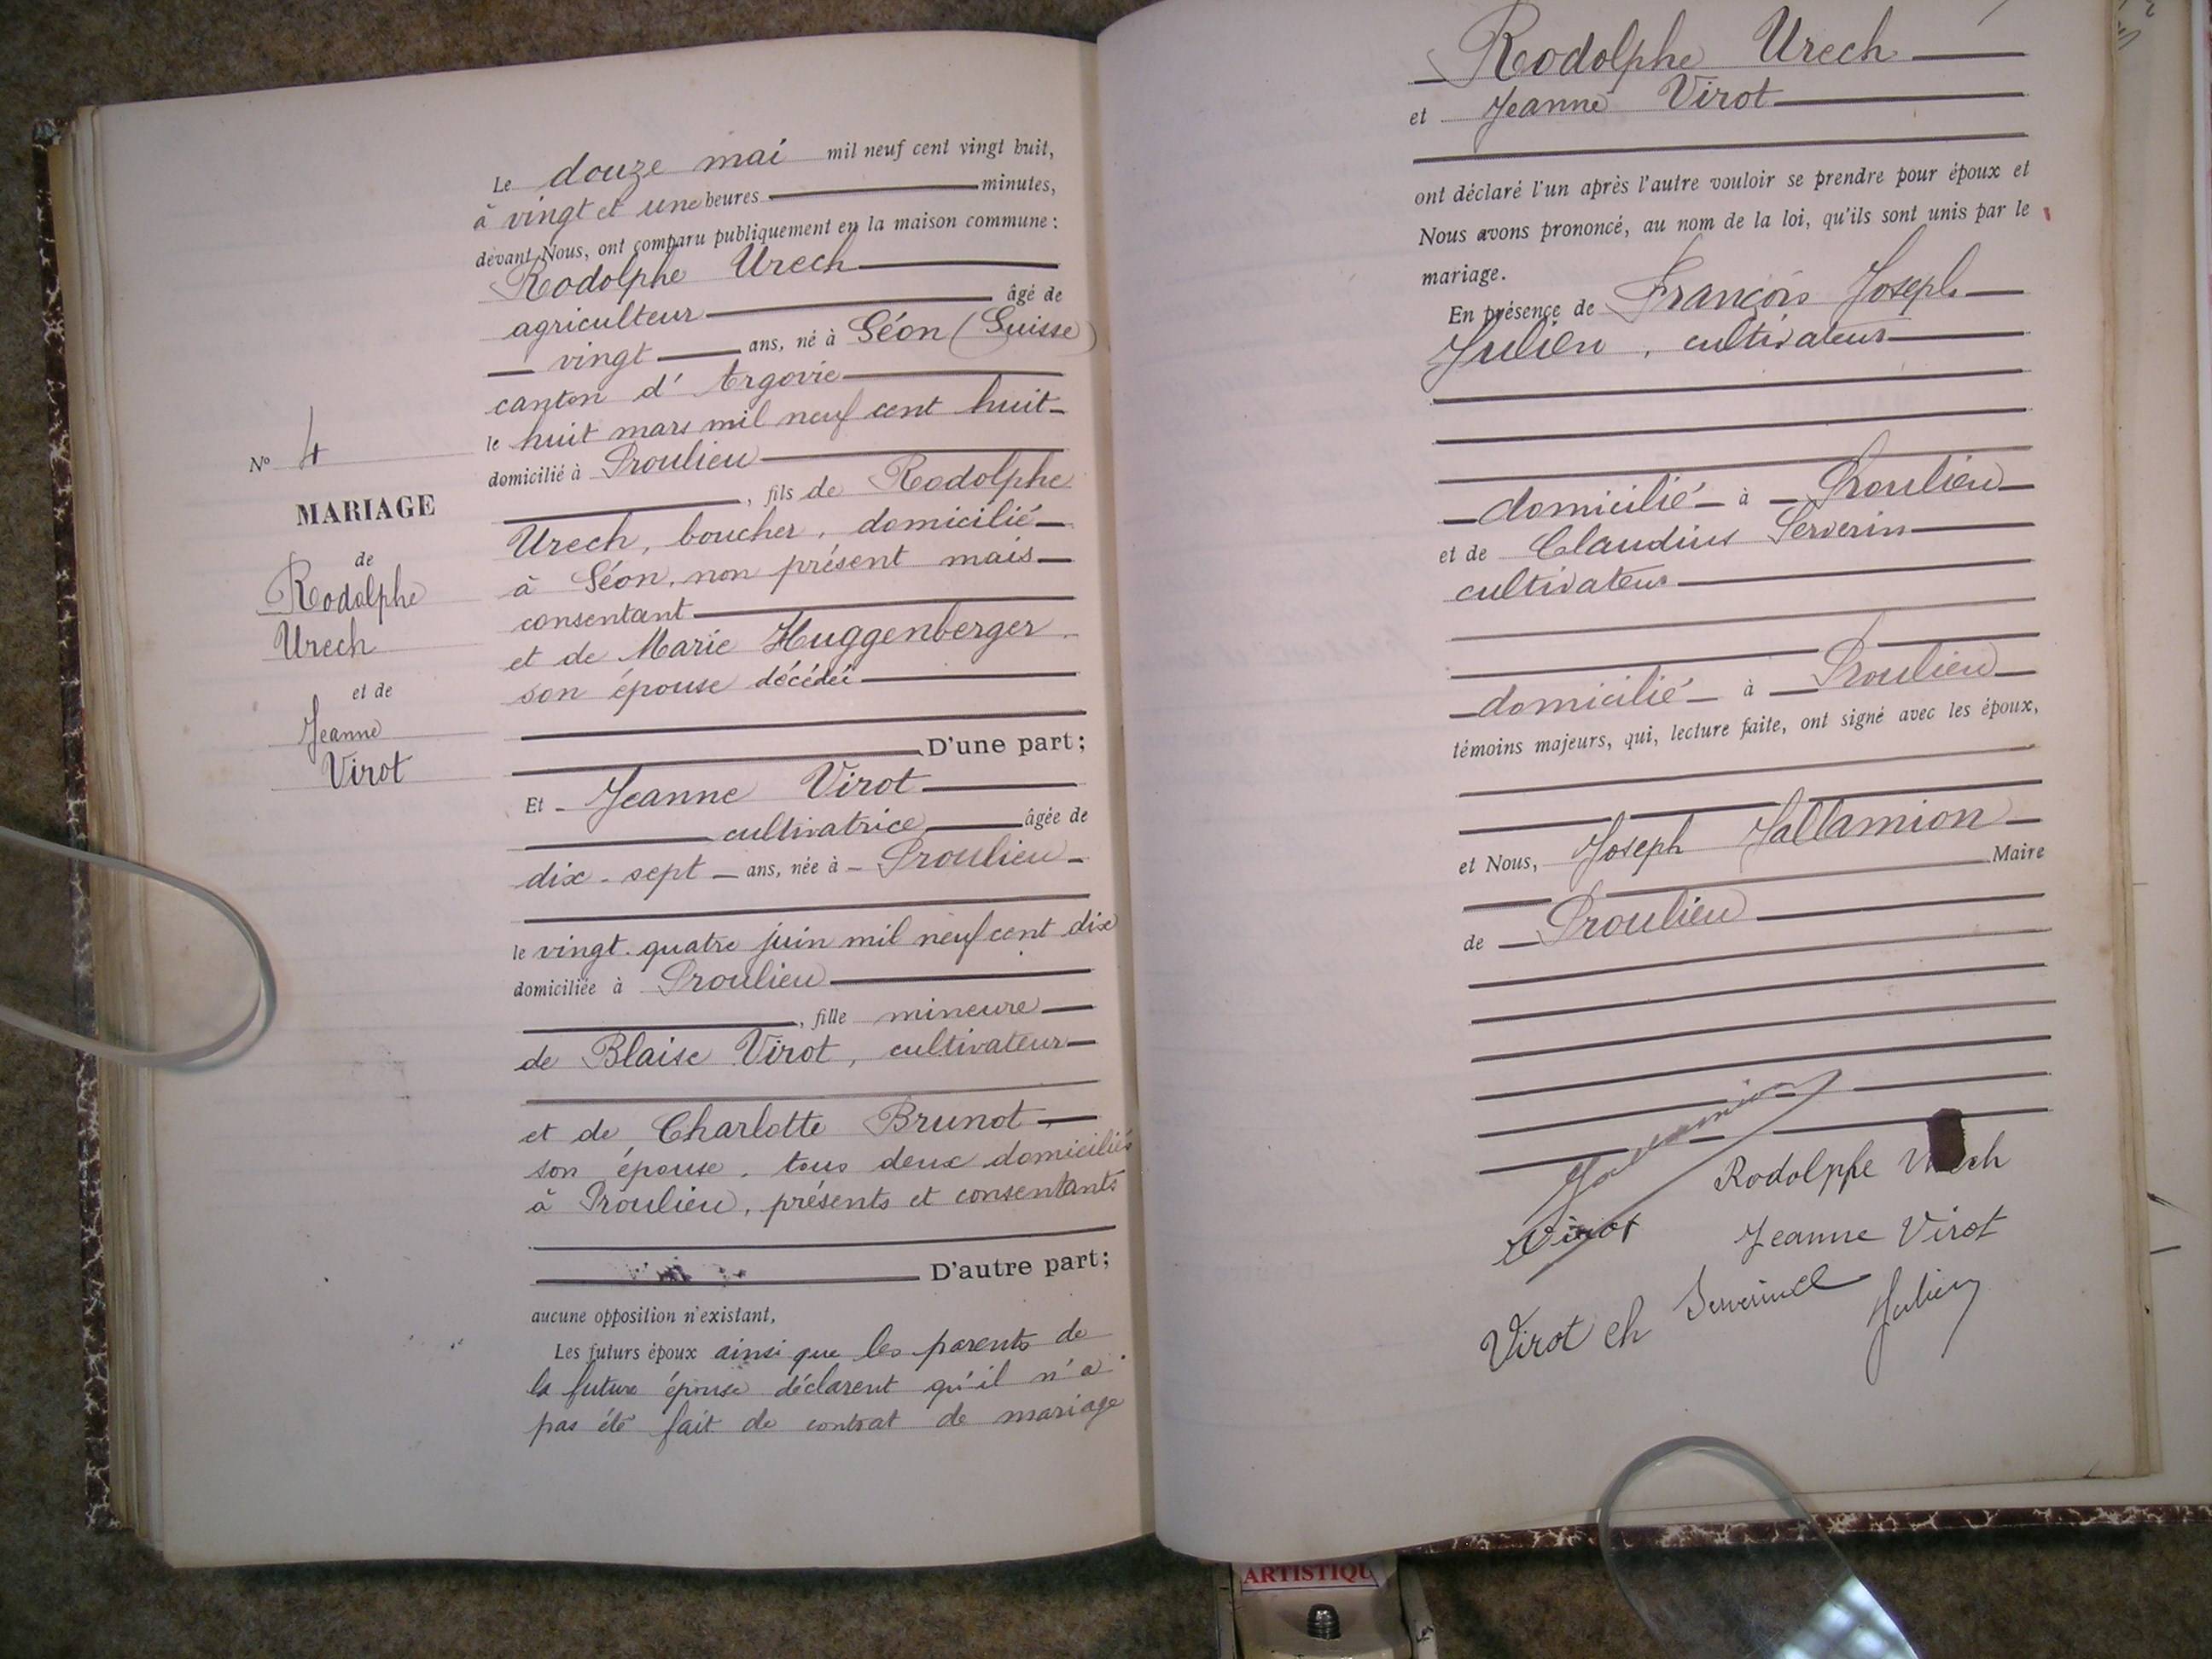 Le douze mai mil neuf cent vingt huit,
à vingt et une heures minutes,
devant Nous, ont comparu publiquement en la maison commune :
Rodolphe Urech
agriculteur âgé de
vingt ans, né à Séon (Suisse)
canton d' Argovie
le huit mars mil neuf cent huit
domicilié à Proulieu
, fils de Rodolphe
Urech, boucher, domicilié
à Séon, non présent mais
consentant
et de Marie Huggenberger
son épouse décédée
D'une part ;
Et Jeanne Virot
cultivatrice âgée de
dix-sept ans, née à Proulieu
le vingt-quatre juin mil neuf cent dix
domiciliée à Proulieu
, fille mineure
de Blaise Virot, cultivateur
et de Charlotte Brunot
son épouse, tous deux domiciliés
à Proulieu, présents et consentants
D'autre part ;
aucune opposition n'existant,
Les futurs époux ainsi que les parents de
la future épouse déclarent qu'il n'a
pas été fait de contrat de mariage
No 4
MARIAGE
de
Rodolphe
Urech
et de
Jeanne
Virot
Rodolphe Urech
et Jeanne Virot
ont déclaré l'un après l'autre vouloir se prendre pour époux et
Nous avons prononcé, au nom de la loi, qu'ils sont unis par le
mariage.
En présence de François Joseph
Julien, cultivateur
domicilié à Proulieu
et de Claudius Serverin
cultivateur
domicilié à Proulieu
témoins majeurs, qui, lecture faite, ont signé avec les époux,
et Nous, Joseph Jallamion
Maire
de Proulieu
Jallamion
Rodolphe Urech
Virot
Jeanne Virot
Julien
Virot Ch
ARTISTIQU